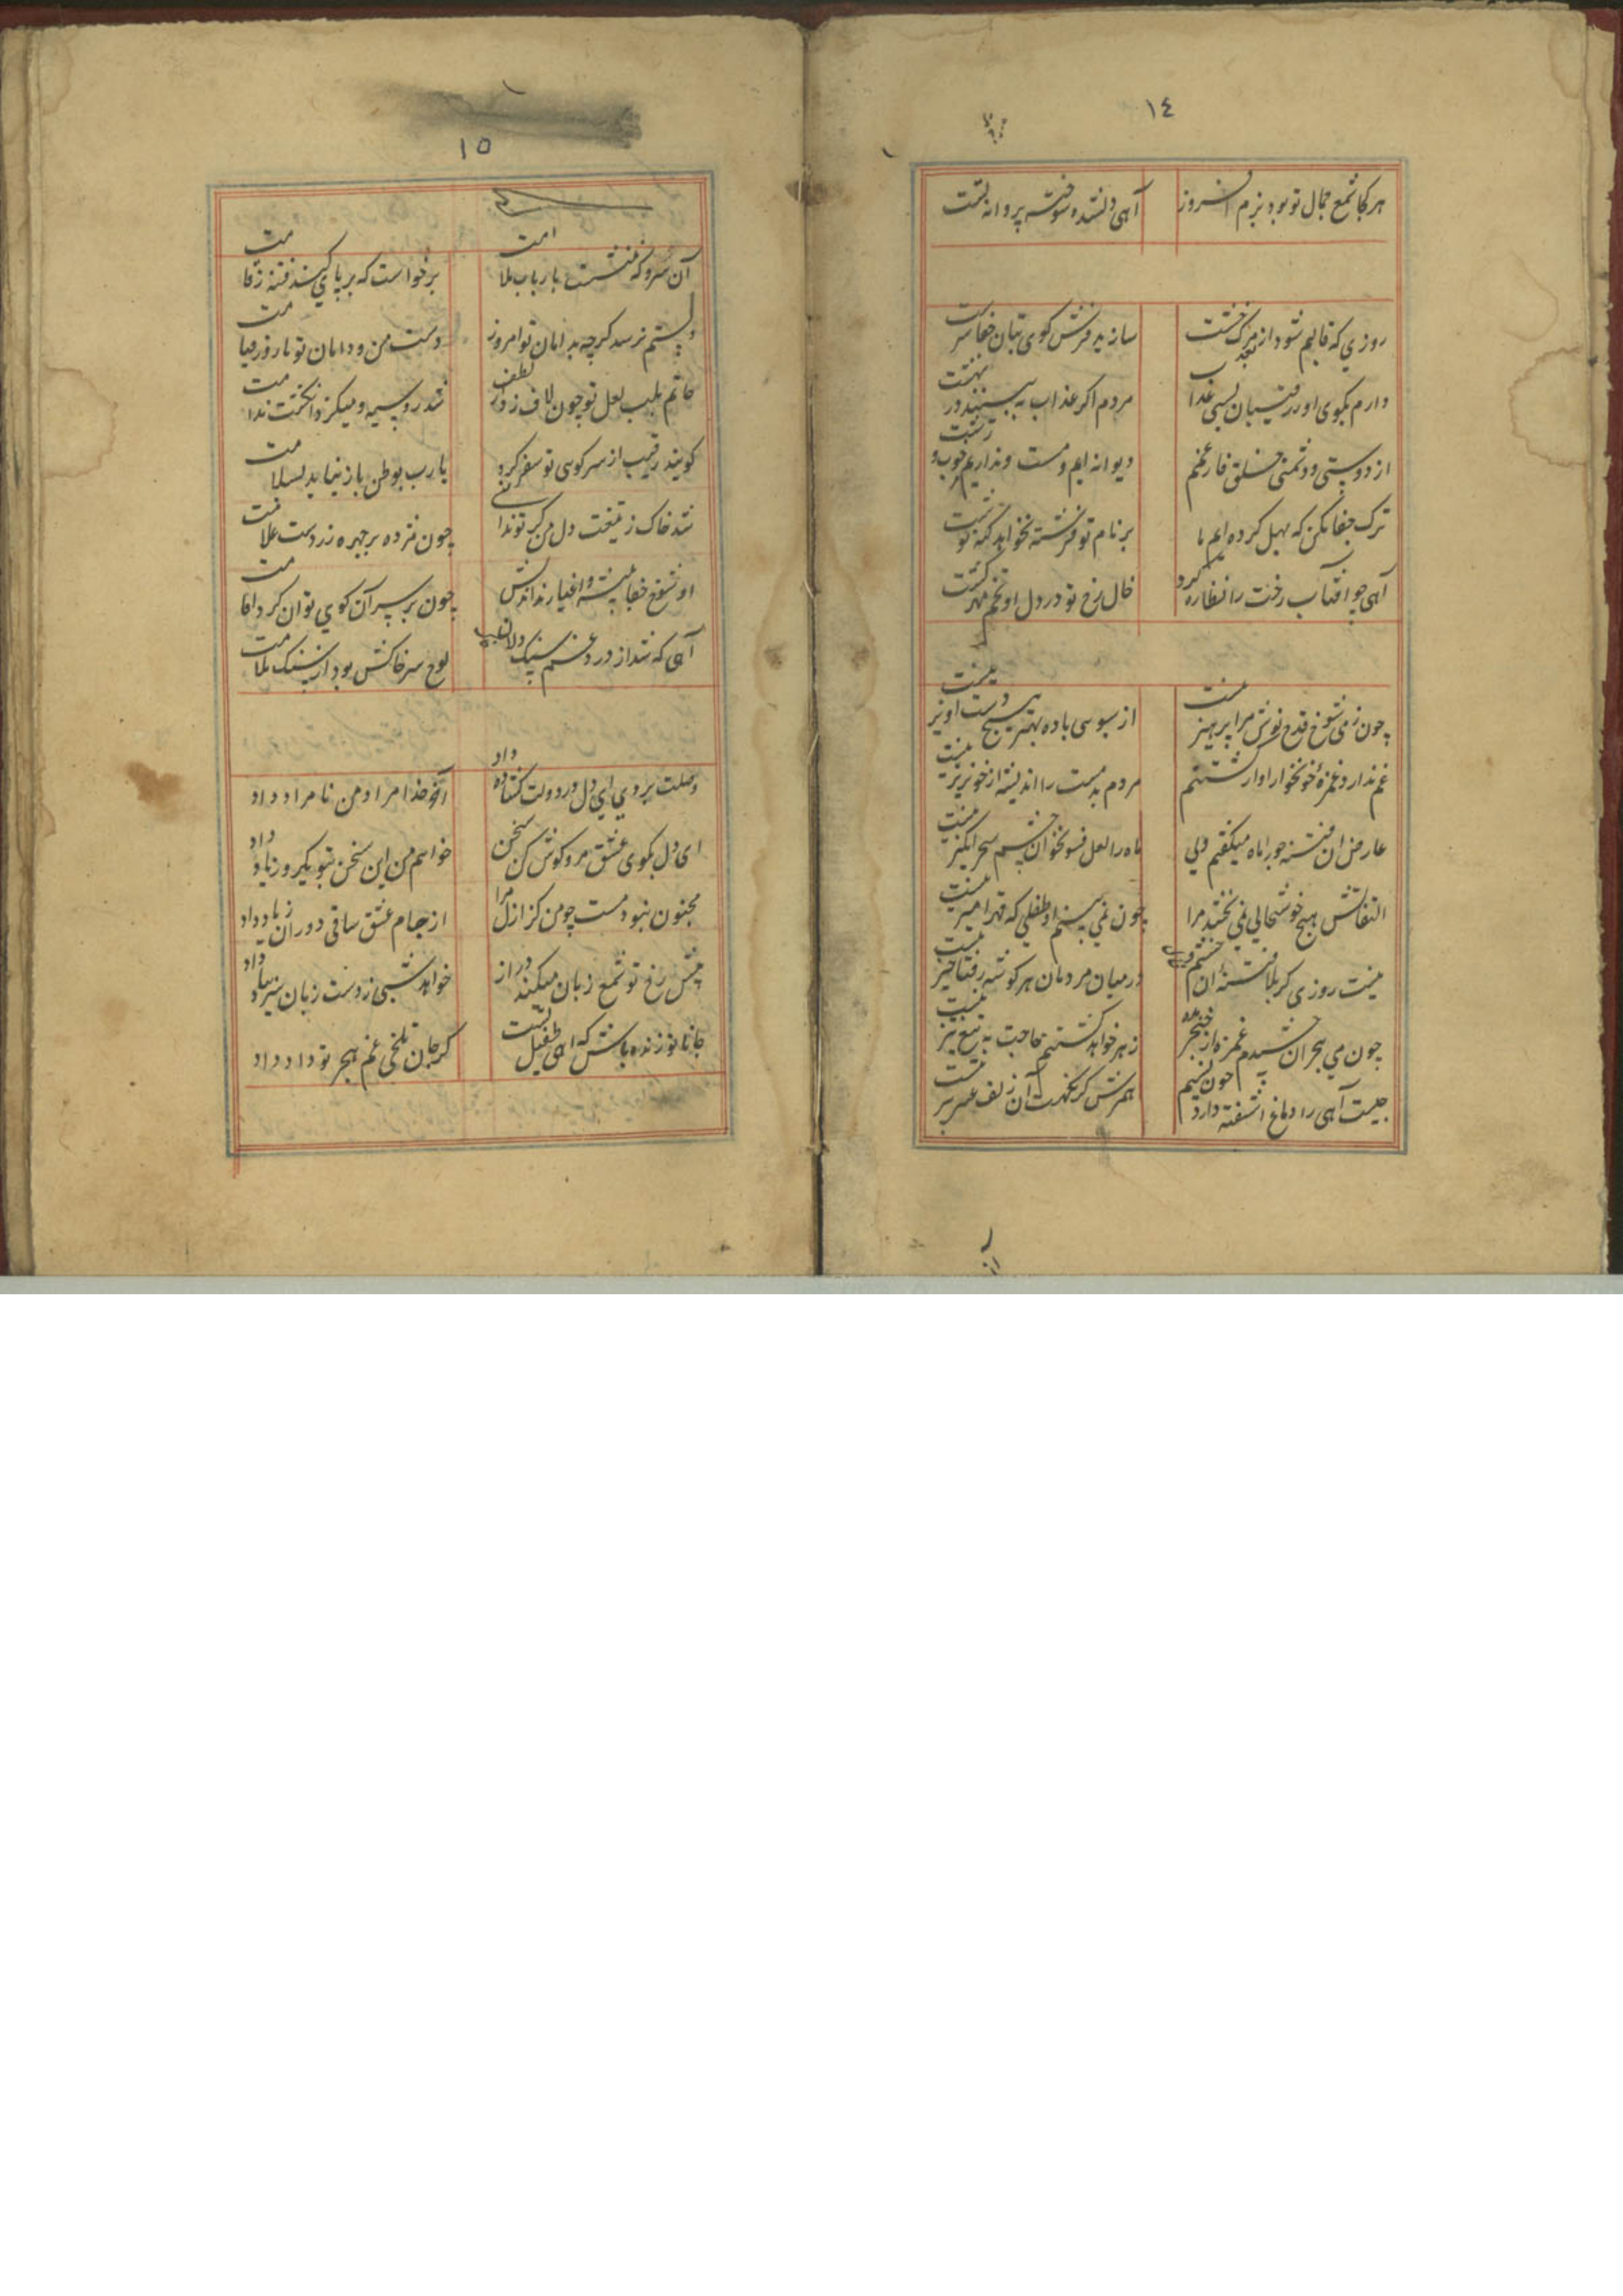 ١٤
هر کجا شمع جمال تو بود بزم افروز
آهی دلشده سوخته پروانه تست
روزی که قالبم شود از مرگ خشت
سازید فرش کوی بتان جفا سرشت
دارم بکوی او ز رقیبان بسی عذاب
مردم اگر عذاب نه بینند در بهشت
از دوستی و دشمنی خلق فارغم
دیوانه ایم و مست و نداریم خوب و زشت
ترک جفا مکن که بهل کرده ایم ما
بر نام تو فرشته نخواهد گنه نوشت
آهی چو آفتاب رخت را نظاره کرد
خال رخ تو در دل او تخم مهر کشت
چون ز می شوخ قدح نوش مرا پرهیز نیست
از سبوی باده بهتر هیچ دست آویز نیست
غم ندارد غمزه خونخوار او از کشتنم
مردم بدمست را اندیشه از خونریز نیست
عارض آن فتنه جو را ماه میگفتم ولی
ماه را لعل فسونخوان چشم سحرانگیز نیست
التفاتش هیچ خوشحالی نمی بخشد مرا
چون نمی بینم او طفلی که قهرآمیز نیست
نیست روزی کز بلا فتنه آن چشم فریب
در میان مردمان هر گوشه رفتاخیز نیست
چون می هجران چشیدم غمزه از خنجر مده
زهر خواهد کشتنم حاجت به تیغ تیز نیست
چیست آهی را دماغ آشفته دارد چون نسیم
همرهش گر نکهت آن زلف عنبربیز نیست
١٥
آن سرو که ننشست بارباب ملامت
برخواست که بر پای کند فتنه ز قامت
دستم نرسد گرچه بدامان تو امروز
دست من و دامان تو تا روز قیامت
خاتم بلب لعل تو چون لاف زد از لطف
شد روسیه و میگزد انگشت ندامت
گویند رقیب از سر کوی تو سفر کرد
یا رب بوطن باز نیاید بسلامت
شد خاک ز تیغت دل من گر تو ندانی
چون مرده بر چهره زردست علامت
او شوخ جفا پیشه و اغیار نداندش
چون بر سر آن کوی توان کرد اقامت
آهی که شد از درد و غم سنگ دلان
لوح سر خاکش بود از سنگ ملامت
وصلت بروی ای دل در دولت گشاده داد
آخر خدا مراد من نامراد داد
ای دل بکوی عشق مرو گوش کن سخن
خواهم من این سخن بتو یکروز یاد داد
مجنون نبود مست چو من کز ازل مرا
از جام عشق ساقی دوران زیاد داد
پیش رخ تو شمع زبان میکند دراز
خواهد شبی ز دست زبان سر بباد داد
جانا تو زنده باش که آهی طفیل تست
گر جان بتلخی غم هجر تو داد داد